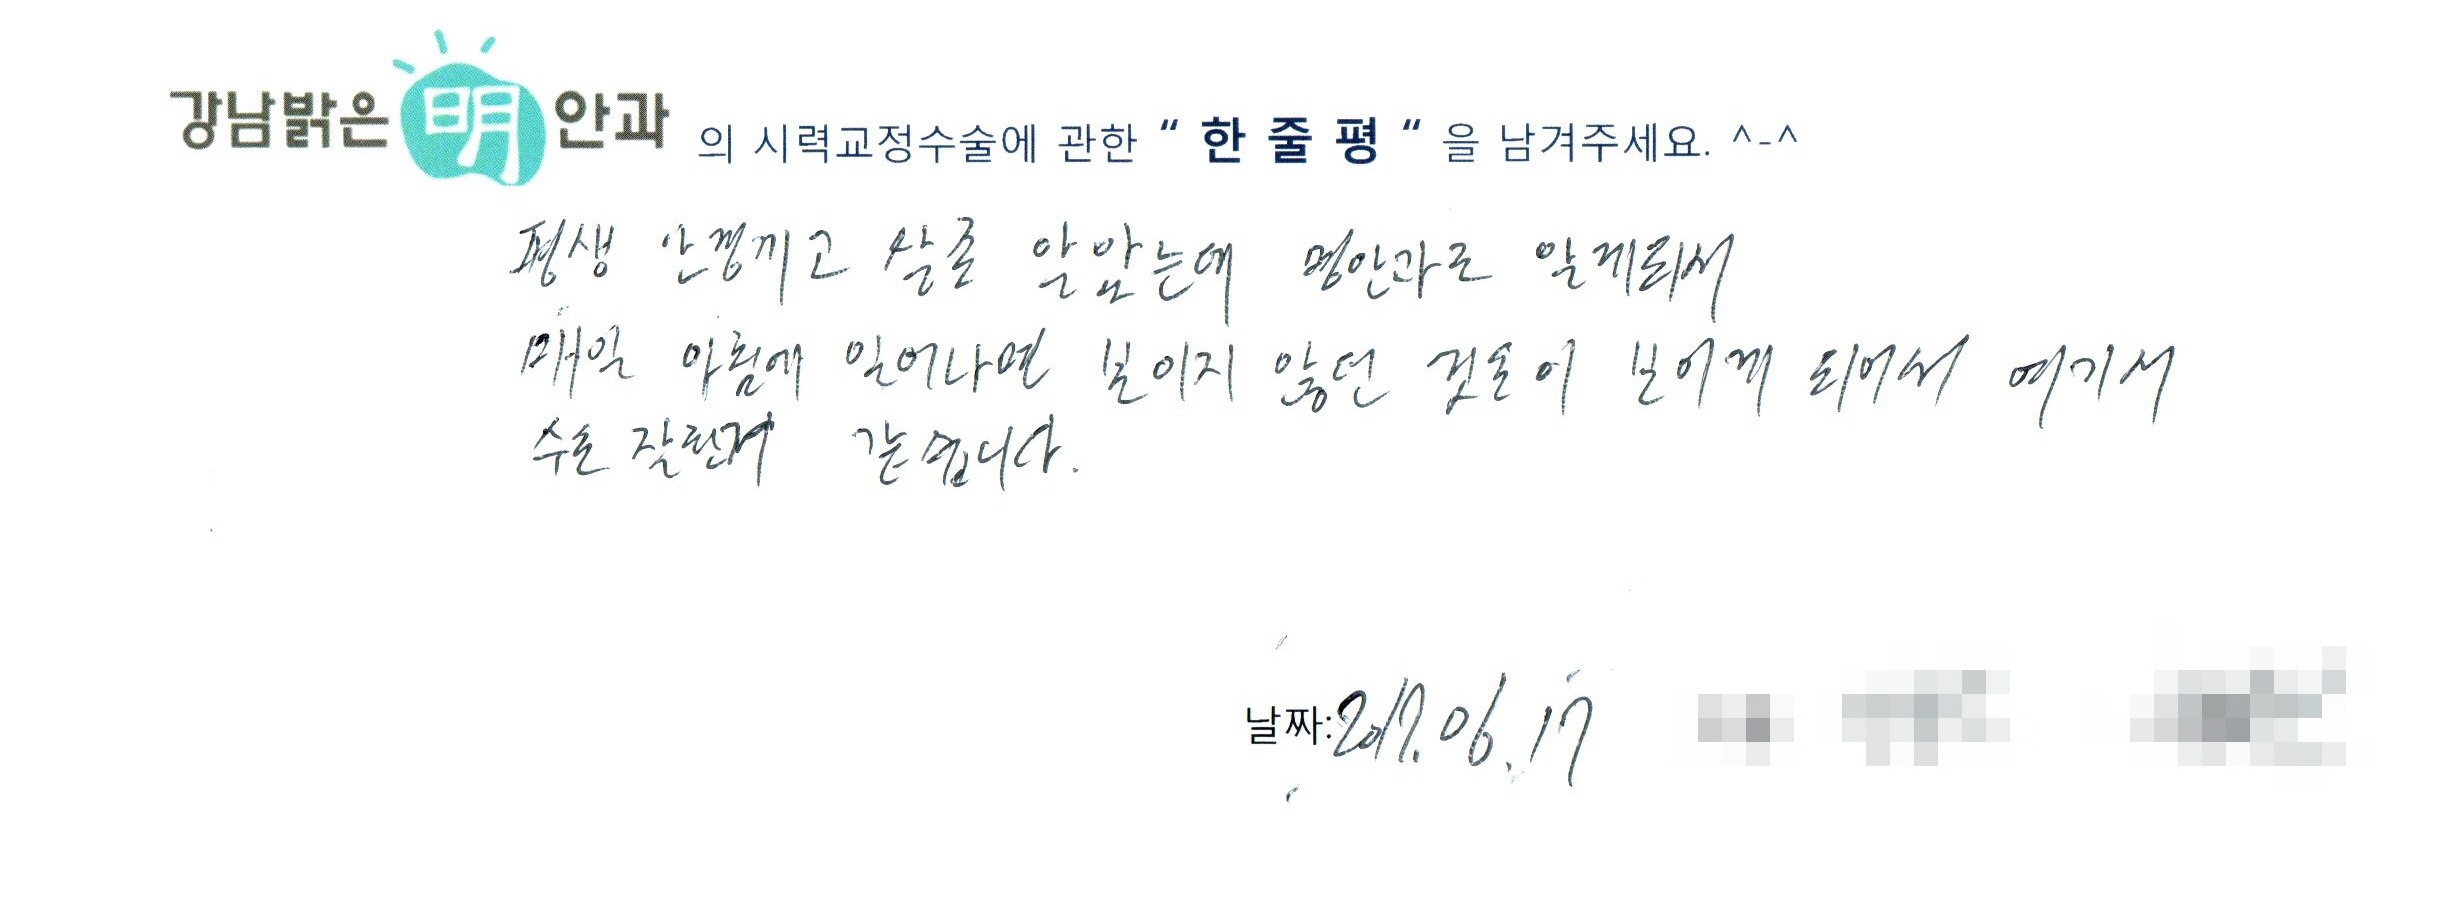 강남밝은 明 안과 의 시력교정수술에 관한 “ 한 줄 평 “ 을 남겨주세요. ^-^
평생 안경끼고 살줄 알았는데 명안과로 알게되서
매일 아침에 일어나면 보이지 않던 것들이 보이게 되어서 여기서
수술 잘된거 같습니다.
날짜: 2017. 06. 17